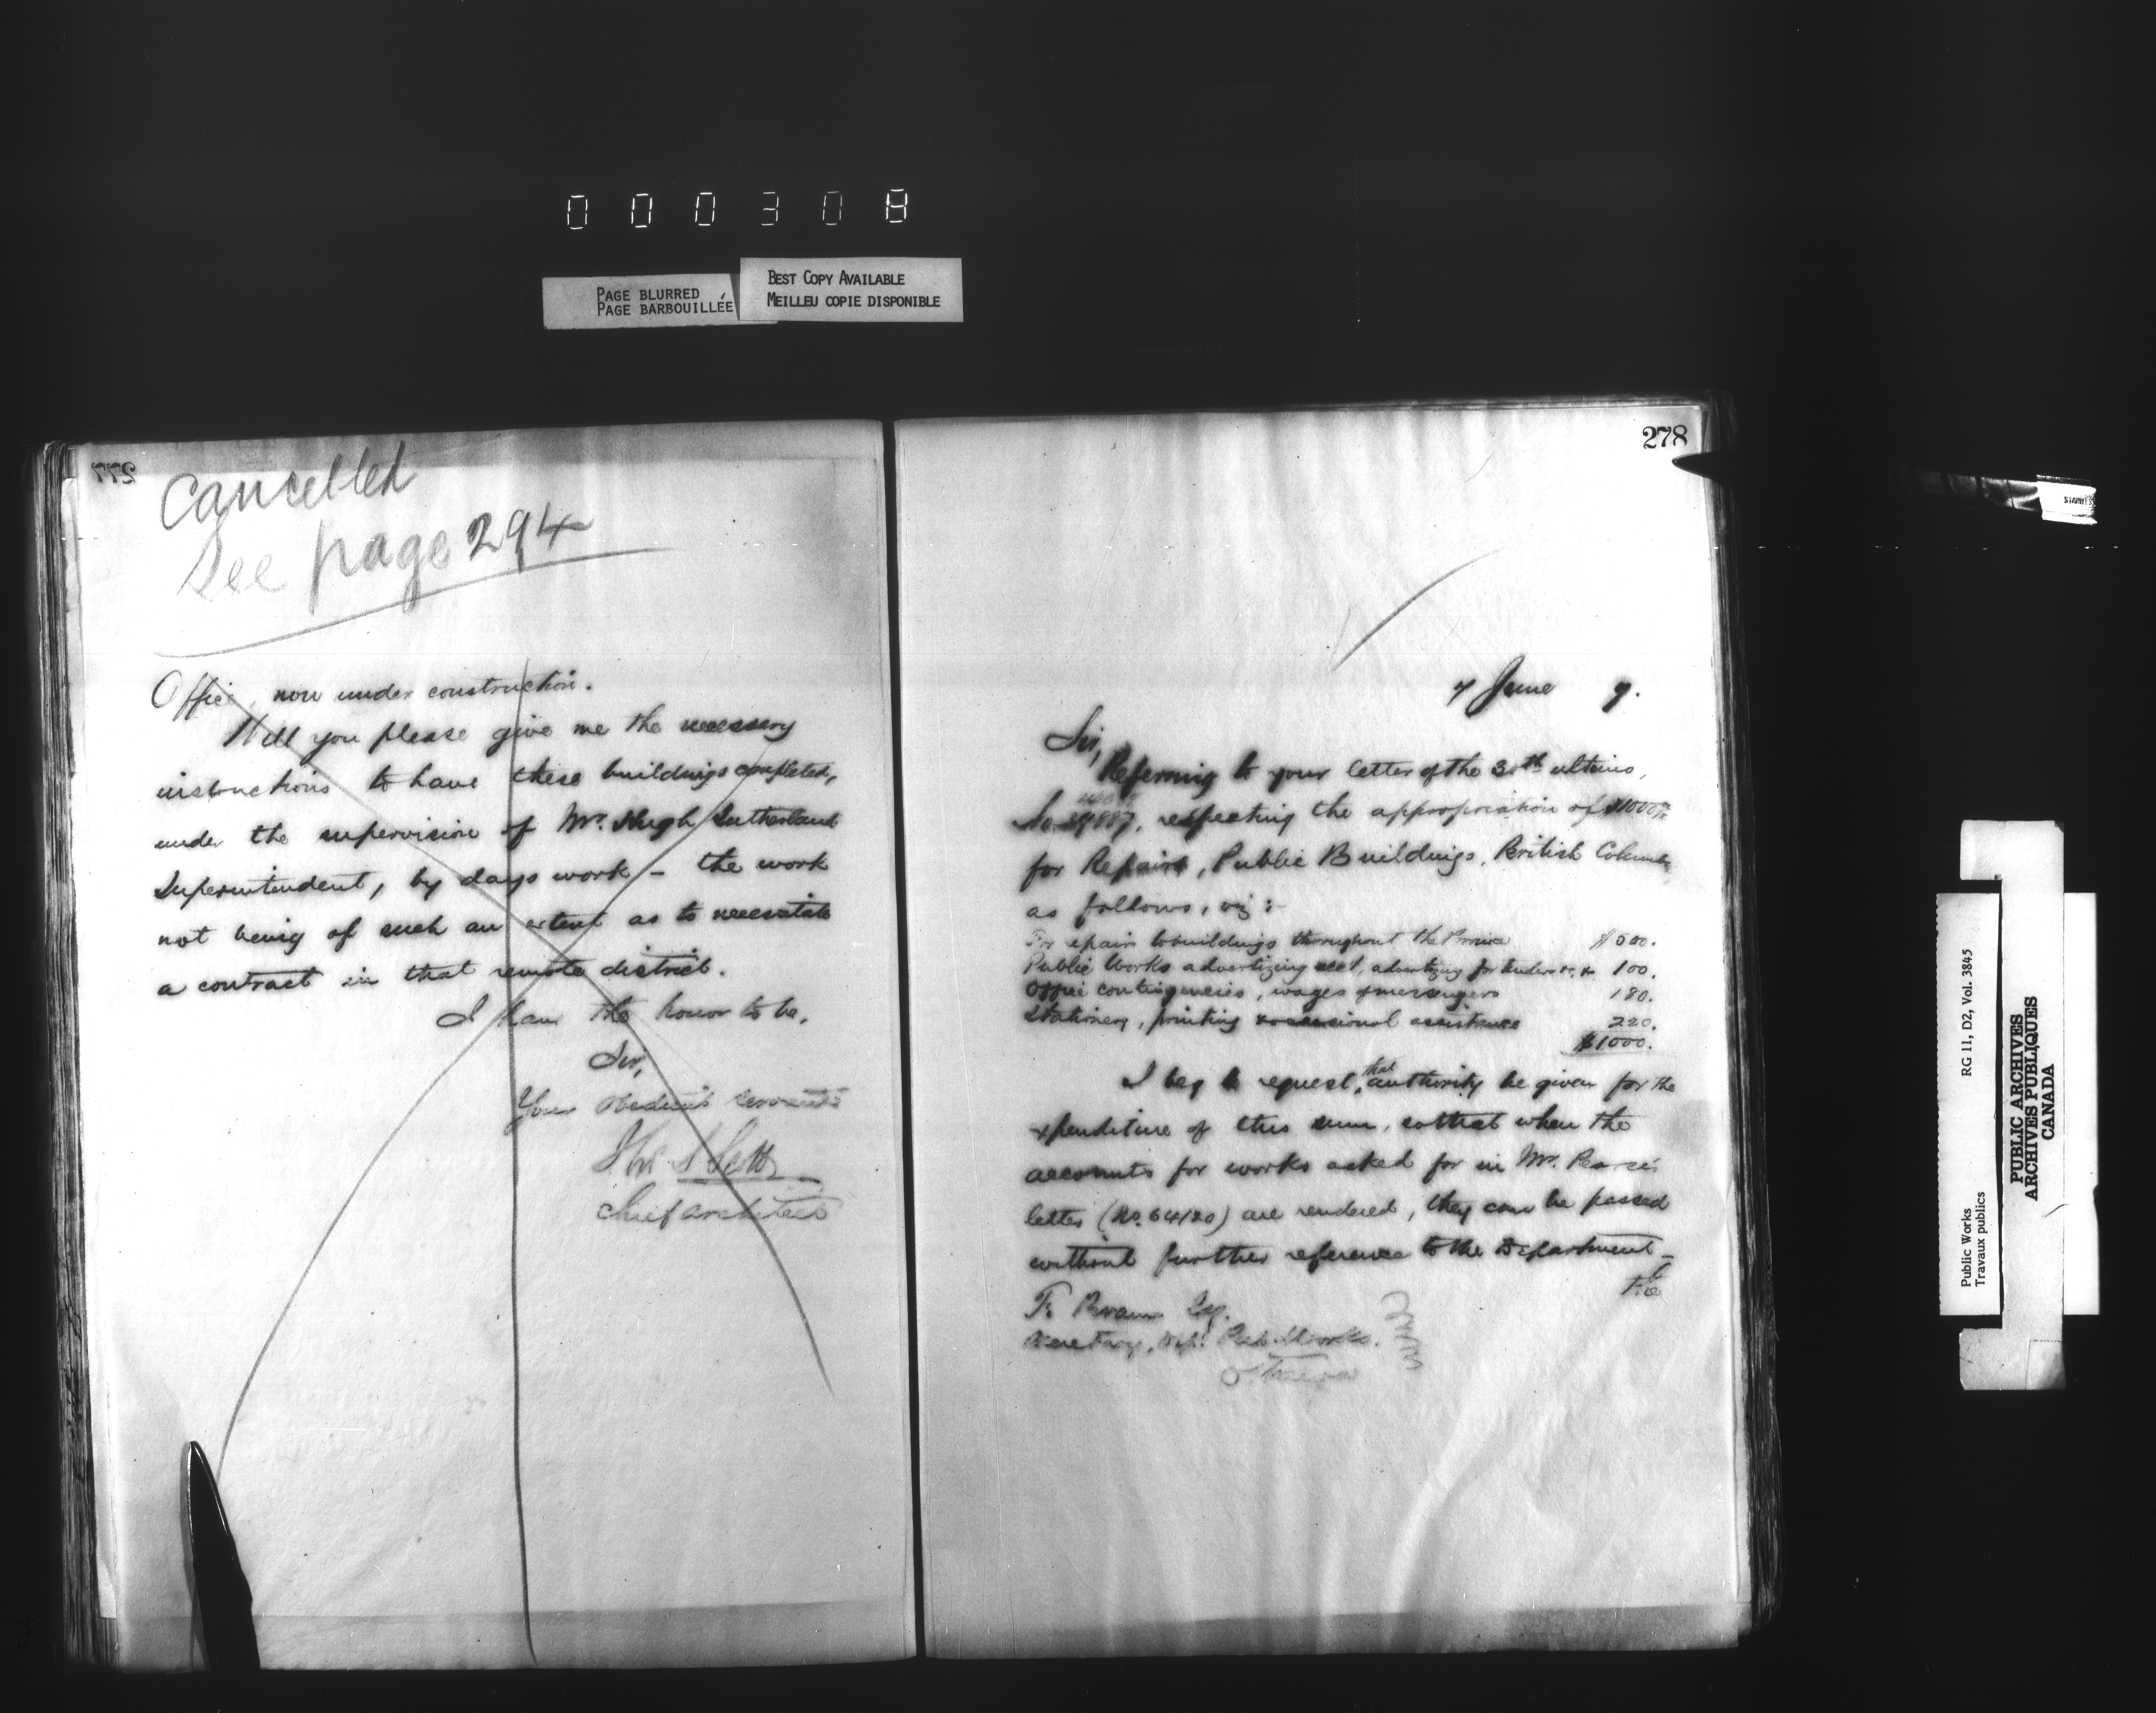 000308
PAGE BLURRED
PAGE BARBOUILLÉE
BEST COPY AVAILABLE
MEILLEU COPIE DISPONIBLE
277
Cancelled
See page 294
Office, now under construction.
Will you please give me the necessary
instructions to have these buildings completed,
under the supervision of Mr. Hugh Sutherland
Superintendent, by days work – the work
not being of such an extent as to necessitate
a contract in that remote district.
I have the honor to be,
Sir,
Your obedient servant
Thos S Scott
Chief Architect
278
7 June 7.
Sir,
Referring to your letter of the 30th ultimo,
No. 39887, respecting the appropriation of $1000
for Repairs, Public Buildings, British Columbia
as follows, viz:-
For repairs to buildings throughout the Province $500.
Public Works advertizing acct, advertizing for tenders &c, &c 100.
Office contingencies, wages of messengers 180.
Stationery, printing & occasional assistance 220.
$1000.
I beg to request, that authority be given for the
expenditure of this sum, so that when the
accounts for works asked for in Mr. Pearse's
letter (No. 64120) are rendered, they can be passed
without further reference to the Department –
F. Braun Esq.
Secretary, Dept. Pub. Works.
Ottawa
STAINLESS
Public Works
Travaux publics
RG 11, D2, Vol. 3845
PUBLIC ARCHIVES
ARCHIVES PUBLIQUES
CANADA